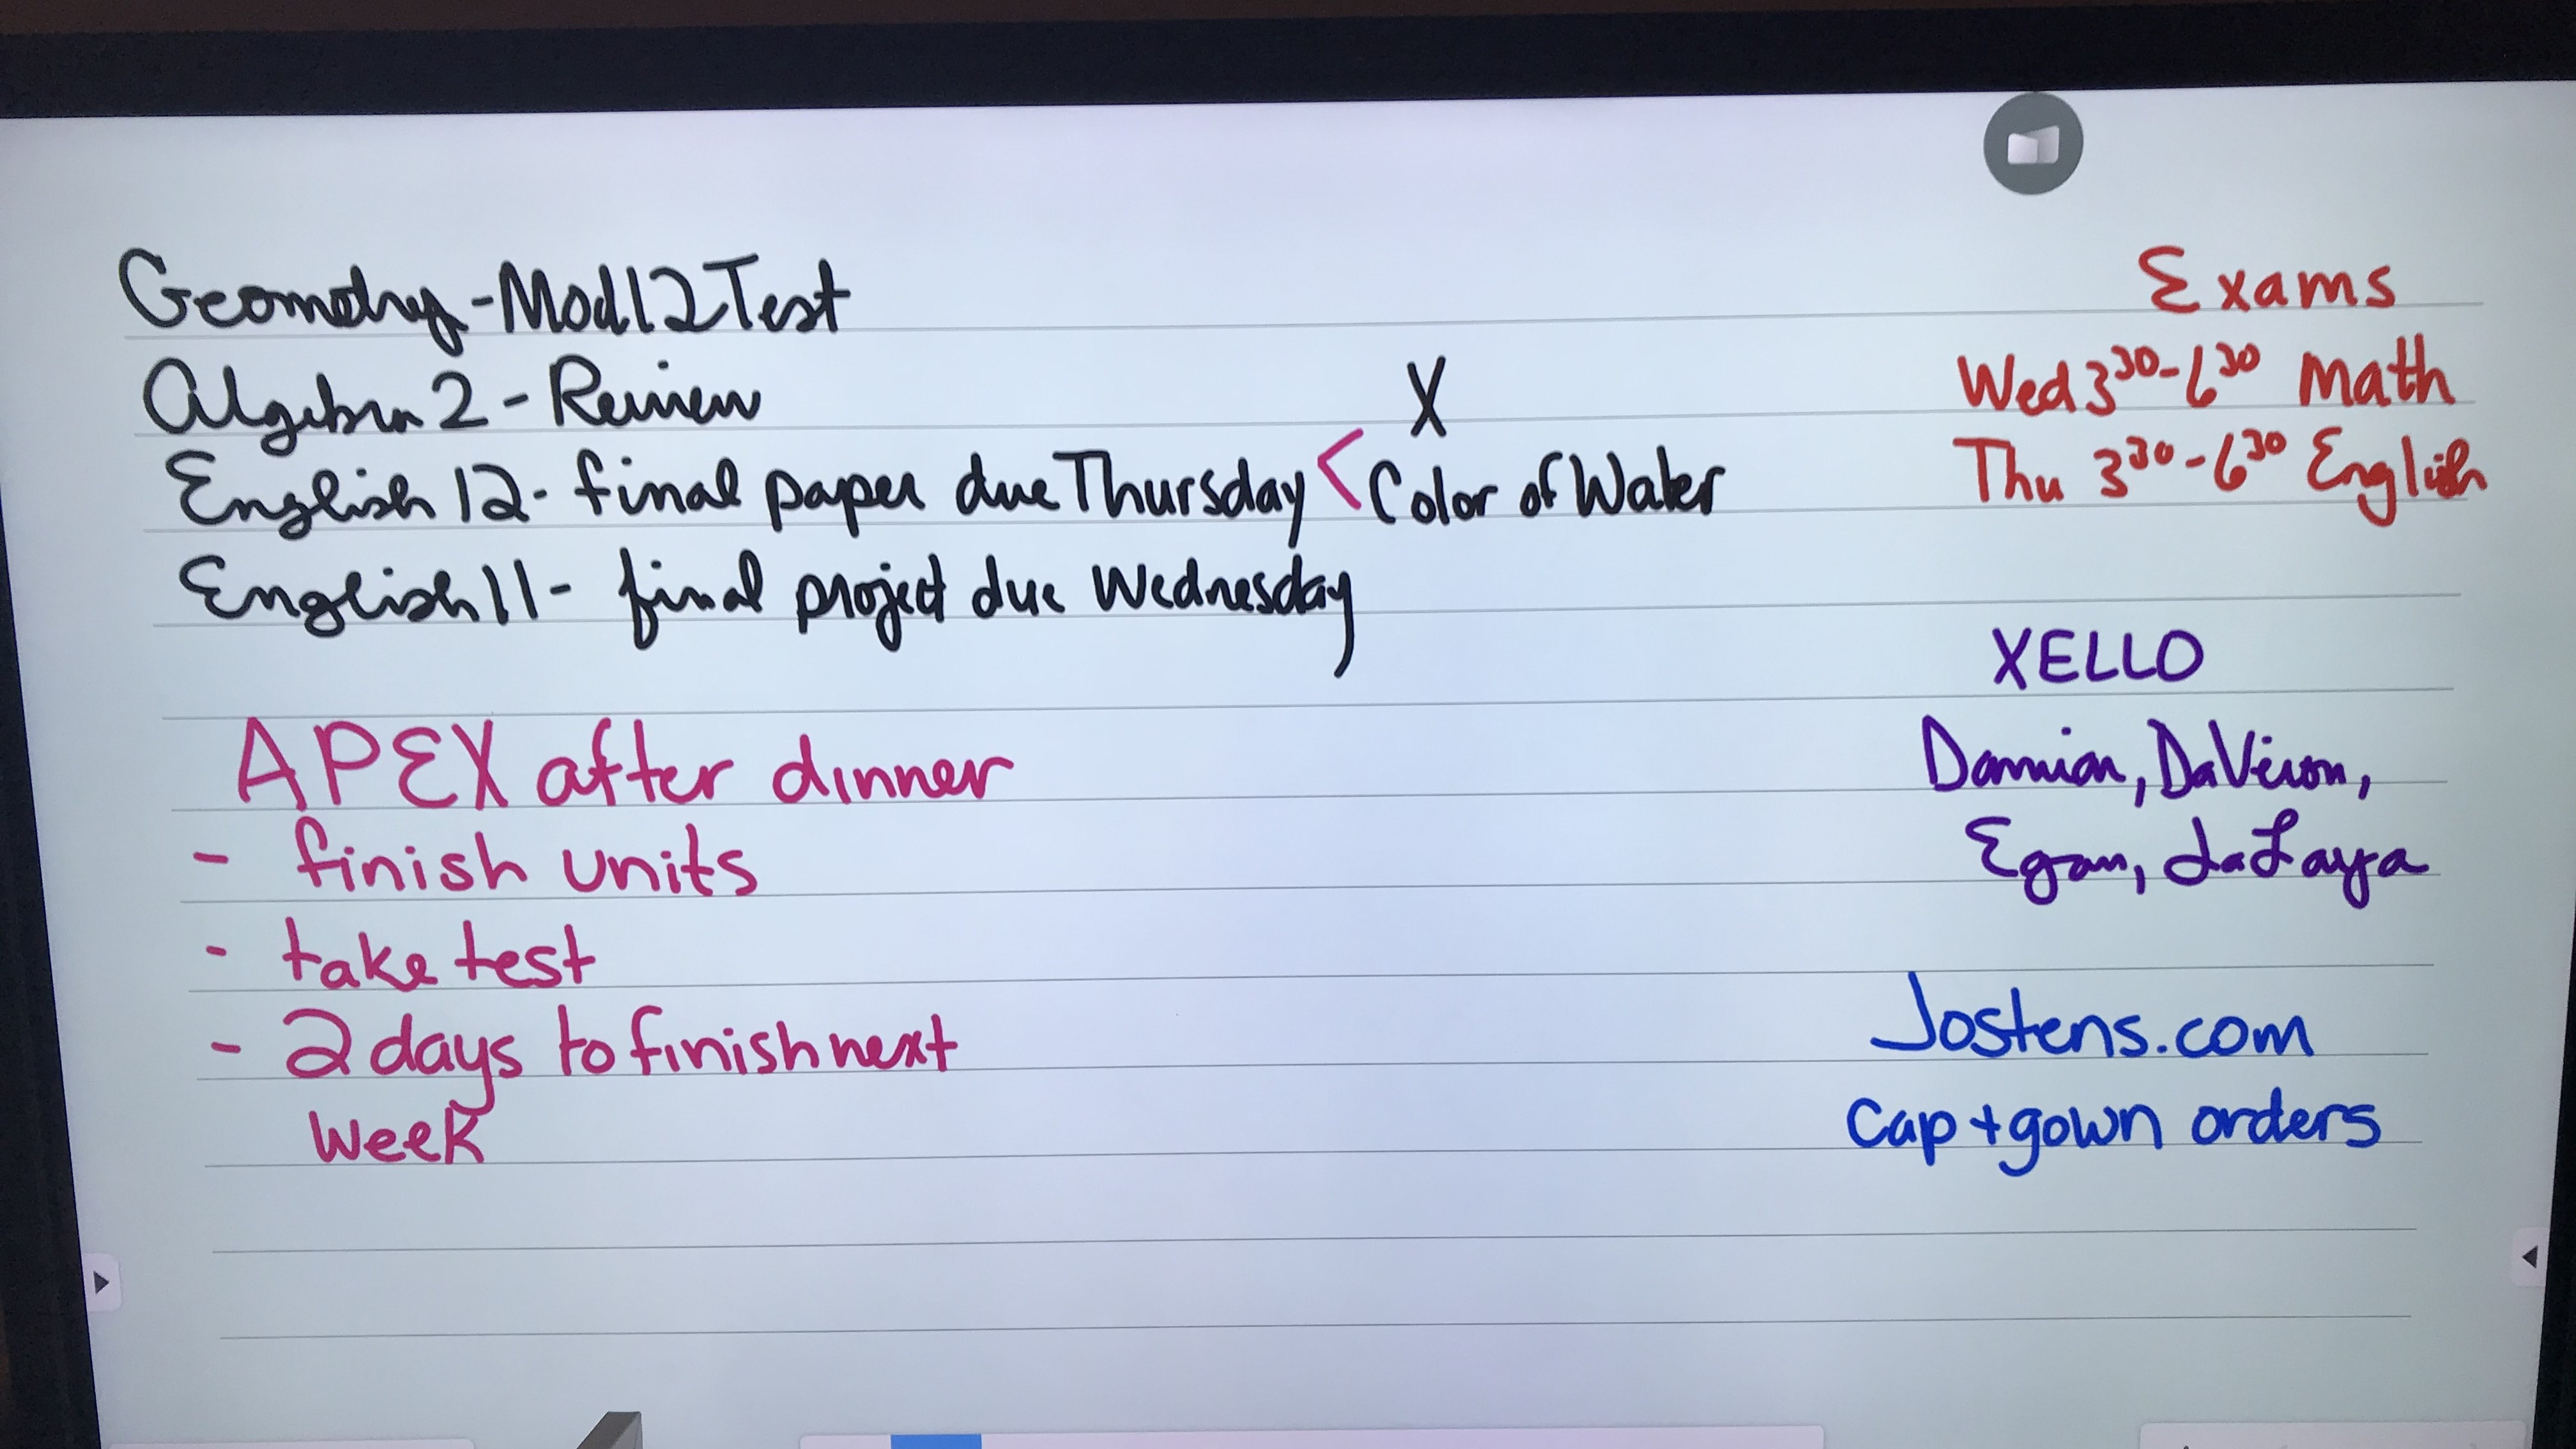 Geometry - Mod 12 Test
Algebra 2 - Review
X
English 12 - final paper due Thursday < Color of Water
English 11 - final project due Wednesday
APEX after dinner
- finish units
- take test
- 2 days to finish next
week
Exams
Wed 3³⁰-6³⁰ Math
Thu 3³⁰-6³⁰ English
XELLO
Damian, DaVeion,
Egan, LaLaya
Jostens.com
Cap + gown orders